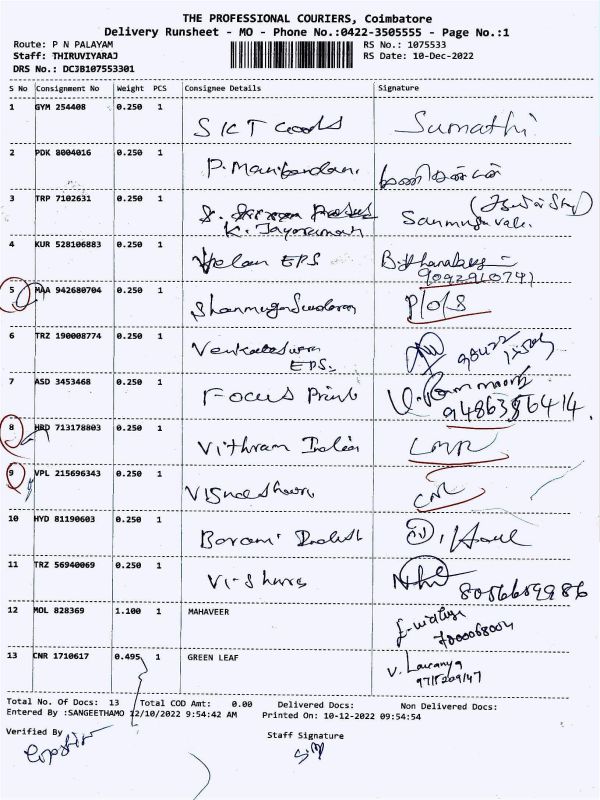 THE PROFESSIONAL COURIERS, Coimbatore
Delivery Runsheet - MO - Phone No.:0422-3505555 - Page No.:1
Route: P N PALAYAM RS No.: 1075533
Staff: THIRUVIYARAJ RS Date: 10-Dec-2022
DRS No.: DCJB107553301
S No Consignment No Weight PCS Consignee Details Signature
1 GYM 254408 0.250 1 SKT Goods Sumathi
2 PDK 8004016 0.250 1 P. Manikandan. மணிகண்டன்
3 TRP 7102631 0.250 1
K. Jayaraman
4 KUR 528106883 0.250 1 Velan EPS
9092910741
5 MAA 942680704 0.250 1 Shanmuga Sundaram P/O/S
6 TRZ 190008774 0.250 1 Venkateswara
EPS.
7 ASD 3453468 0.250 1 Focus Print
9486386414.
8 HBD 713178803 0.250 1 Vithram India
9 VPL 215696343 0.250 1 Vigneshwara
10 HYD 81190603 0.250 1
11 TRZ 56940069 0.250 1
8056659986
12 MOL 828369 1.100 1 MAHAVEER
13 CNR 1710617 0.495 1 GREEN LEAF V. Lavanya
9715209147
Total No. Of Docs: 13 Total COD Amt: 0.00 Delivered Docs: Non Delivered Docs:
Entered By :SANGEETHAMO 12/10/2022 9:54:42 AM Printed On: 10-12-2022 09:54:54
Verified By Staff Signature